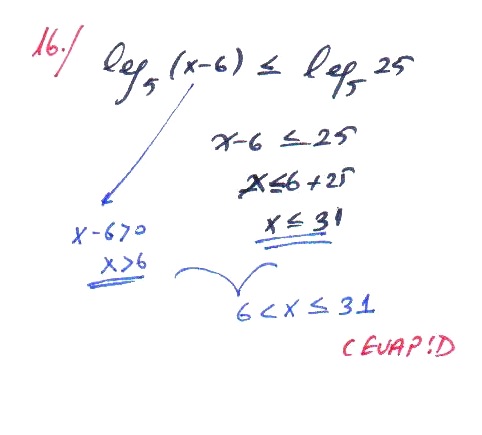 16./ log₅ (x-6) ≤ log₅ 25
x-6 ≤ 25
x ≤ 6 + 25
x ≤ 31
x-6>0
x>6
6 < x ≤ 31
CEVAP:D